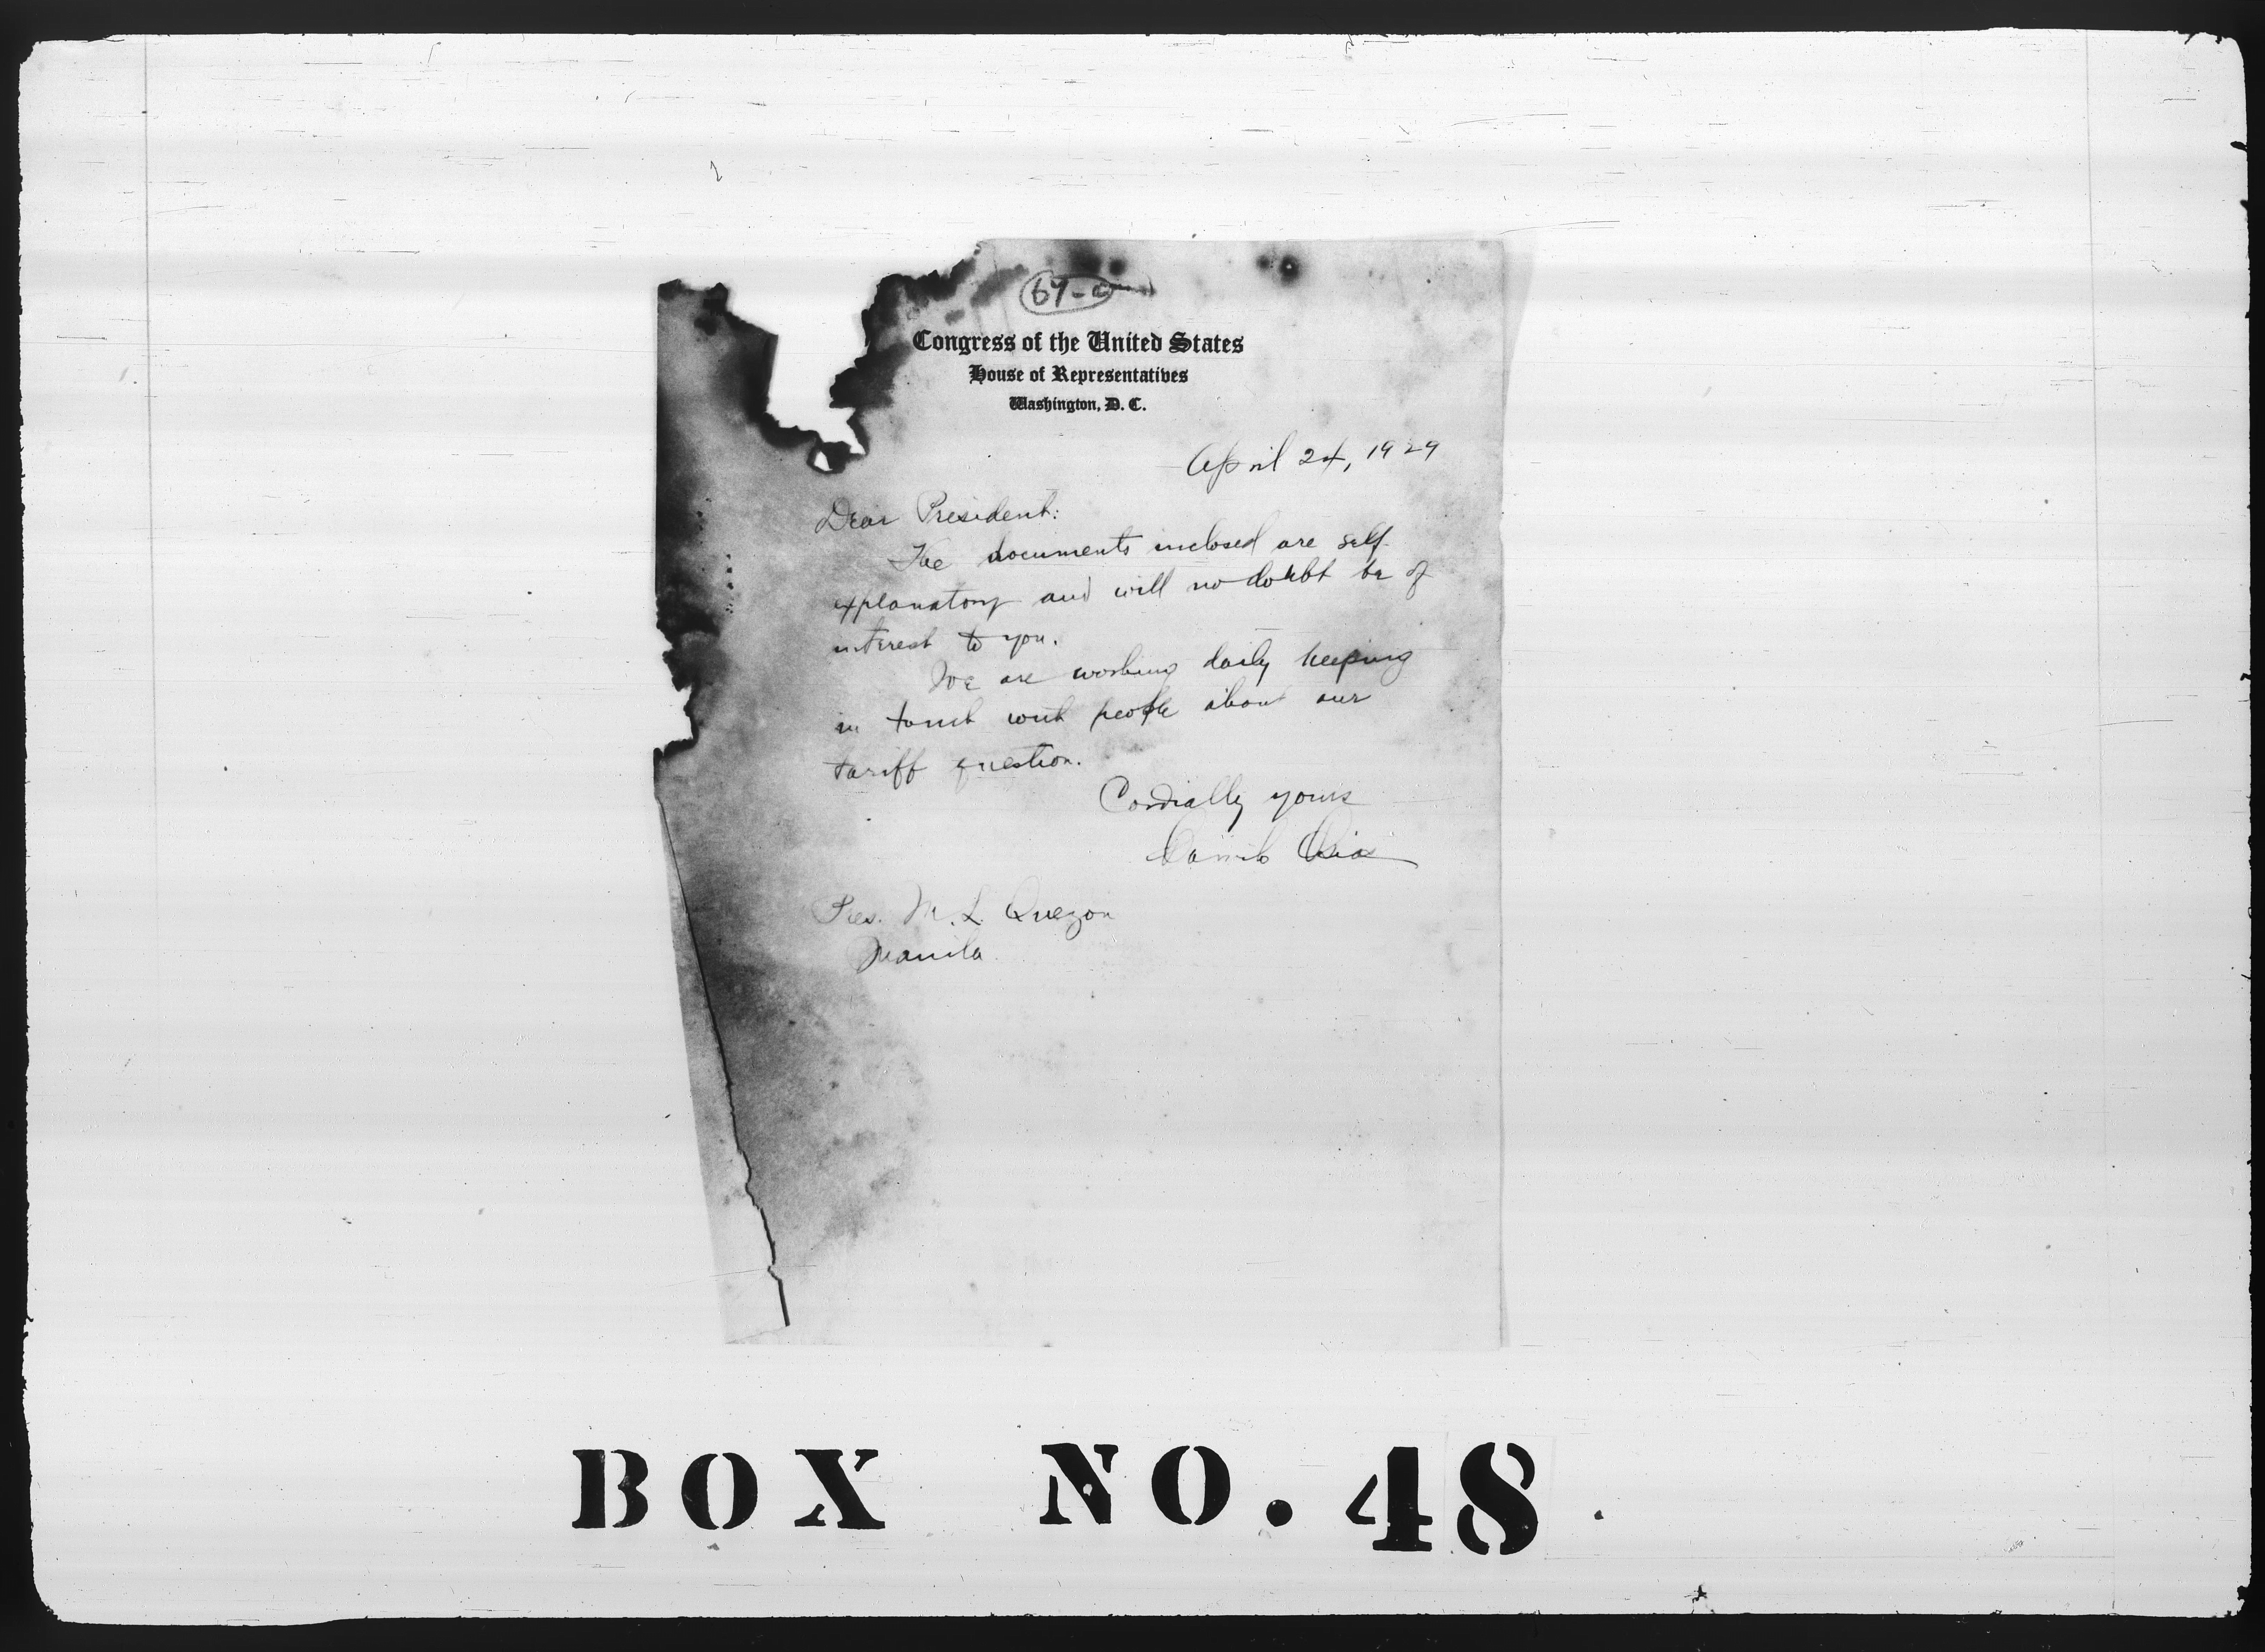 Congress of the United States
House of Representatives
Washington, D. C.
April 24, 1929
Dear President:
The documents inclosed are self-
explanatory and will no doubt be of
interest to you.
We are working daily keeping
in touch with people about our
tariff question.
Cordially yours
Camilo Osias
Pres. M. L. Quezon
Manila
BOX NO. 48